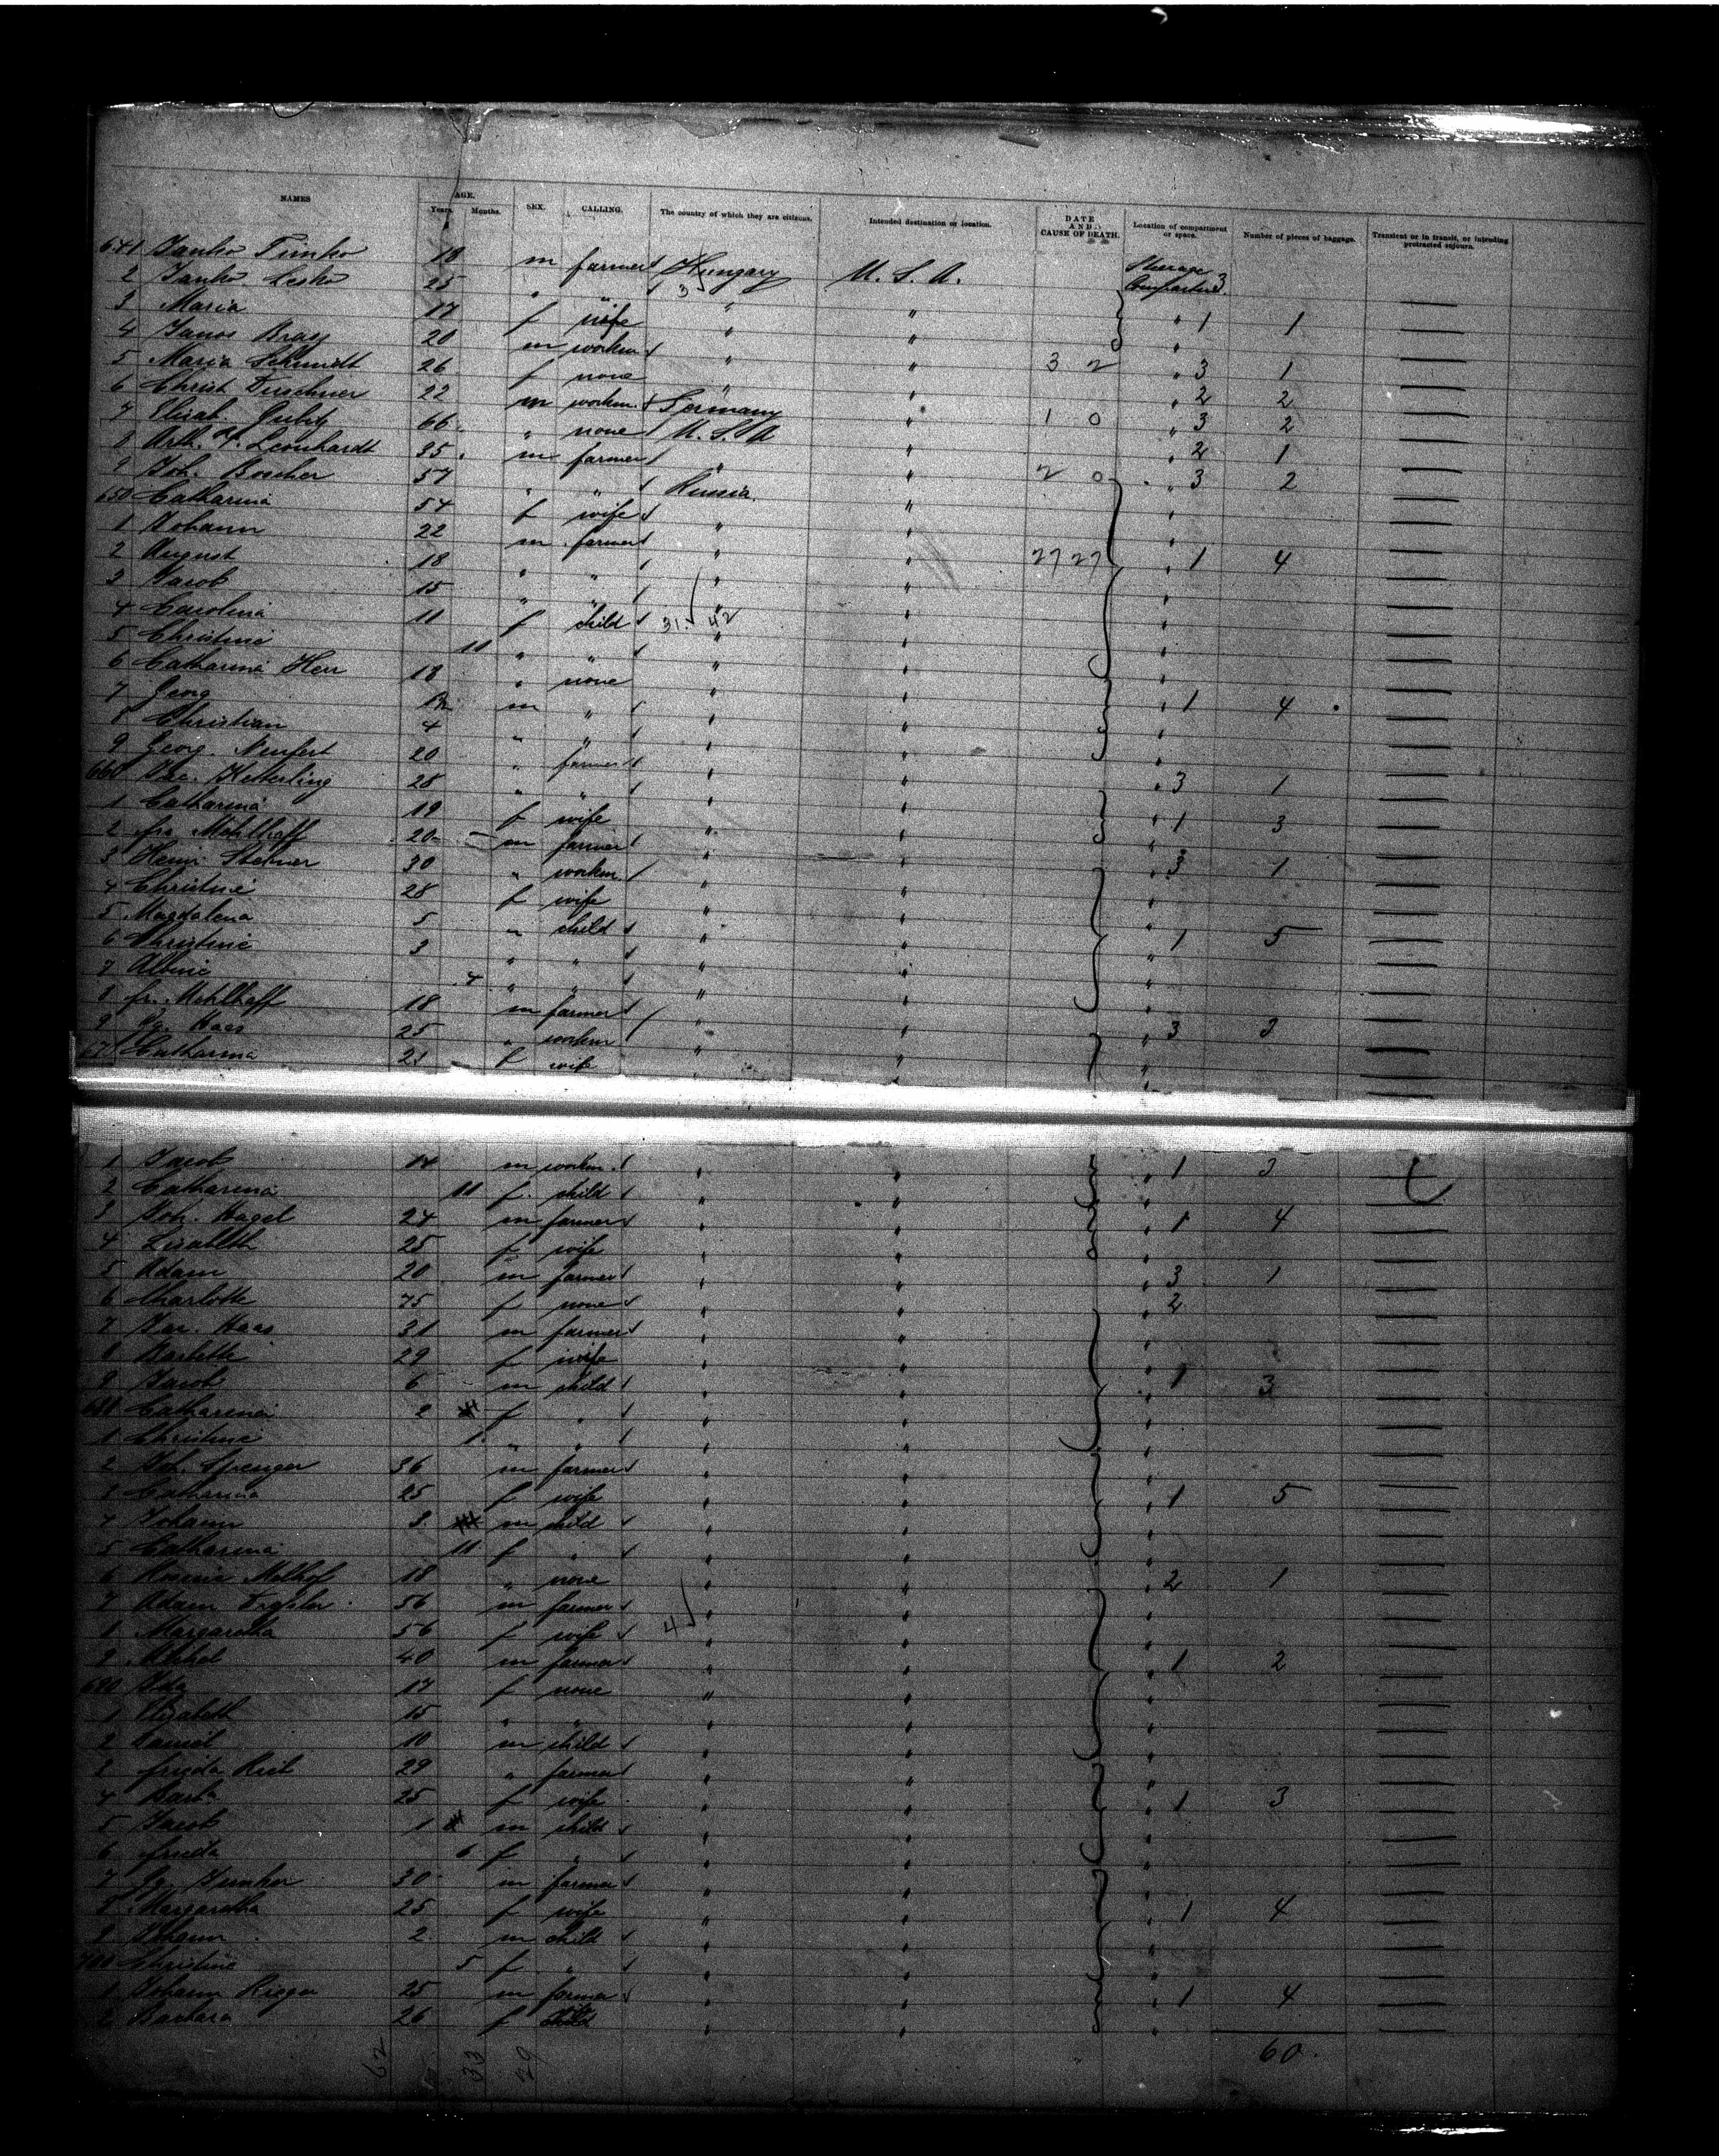 NAMES AGE. Years. Months. SEX. CALLING. The country of which they are citizens. Intended destination or location. DATE AND CAUSE OF DEATH. Location of compartment or space. Number of pieces of baggage. Transient or in transit, or intending protracted sojourn.
641 Janko Timko 18 m farmer Hungary U. S. A. Steerage Compartm. 3
2 Janko Lesko 25 " " 3
3 Maria 17 f wife " " " 1 1
4 Janos Bray 20 m workm " " "
5 Maria Schmidt 26 f none " " 3 2 " 3 1
6 Christ 22 m workm Germany " " 2 2
7 Elisab. 66 " none U. S. A " 1 0 " 3 2
8 Arth. F. Leonhardt 35 m farmer " " " 2 1
9 Joh. Boscher 57 " " Russia " 2 0 " 3 2
650 Catharina 54 f wife " " "
1 Johann 22 m farmer " " "
2 August 18 " " " " 27 27 " 1 4
3 Jacob 15 " " " " "
4 Carolina 11 f child 31 42 " "
5 Christine 11 " " " " "
6 Catharina Herr 18 " none " " "
7 Georg m " " " " 1 4
8 Christian 4 " " " " "
9 Georg Neufert 20 " farmer " " "
660 Jac. Ketterling 28 " " " " " 3 1
1 Catharina 19 f wife " " " 1 3
2 fr. Mehlhaff 20 m farmer " " "
3 Heinr. Stelner 30 " workm " " " 3 1
4 Christine 28 f wife " " "
5 Magdalena 5 " child " " "
6 Christine 3 " " " " " 1 5
7 Albine 4 " " " " "
8 fr. Mehlhaff 18 m farmer " " "
9 Gg. Haas 25 " workm " " " 3 3
670 Catharina 21 f wife " " "
1 Jacob 14 m workm " " " 1 3
2 Catharina 11 f child " " "
3 Joh. Hagel 24 m farmer " " " 1 4
4 Lisabeth 25 f wife " " "
5 Adam 20 m farmer " " " 3 1
6 Charlotte 75 f none " " " 2
7 Jac. Haas 31 m farmer " " "
8 Barbette 29 f wife " " "
9 Jacob 6 m child " " " 1 3
680 Catharina 2 f " " " "
1 Christine 1 " " " " "
2 Joh. Spenger 36 m farmer " " "
3 Catharina 25 f wife " " " 1 5
4 Johann 3 m child " " "
5 Catharina 11 f " " " "
6 18 " none " " " 2 1
7 Adam 56 m farmer " " "
8 Margaretha 56 f wife 4 " " "
9 Michel 40 m farmer " " " 1 2
690 Ida 17 f none " " "
1 Elisabeth 15 " " " " "
2 Daniel 10 m child " " "
3 29 " farmer " " "
4 Barb. 25 f wife " " " 1 3
5 Jacob 1 m child " " "
6 frieda 6 f " " " "
7 Gg. 30 m farmer " " "
8 Margaretha 25 f wife " " " 1 4
9 Johann 2 m child " " "
700 Christine 5 f " " " "
1 Johann Rieger 25 m farmer " " " 1 4
2 Barbara 26 f " " "
62 33 29 60